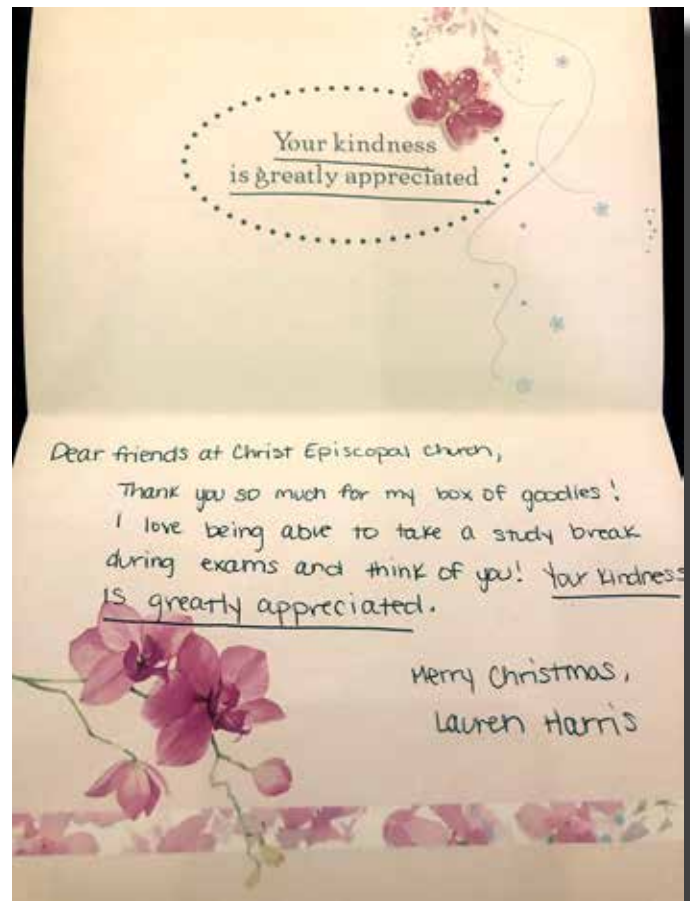 Your kindness
is greatly appreciated
Dear friends at Christ Episcopal Church,
Thank you so much for my box of goodies!
I love being able to take a study break
during exams and think of you! Your kindness
is greatly appreciated.
Merry Christmas,
Lauren Harris